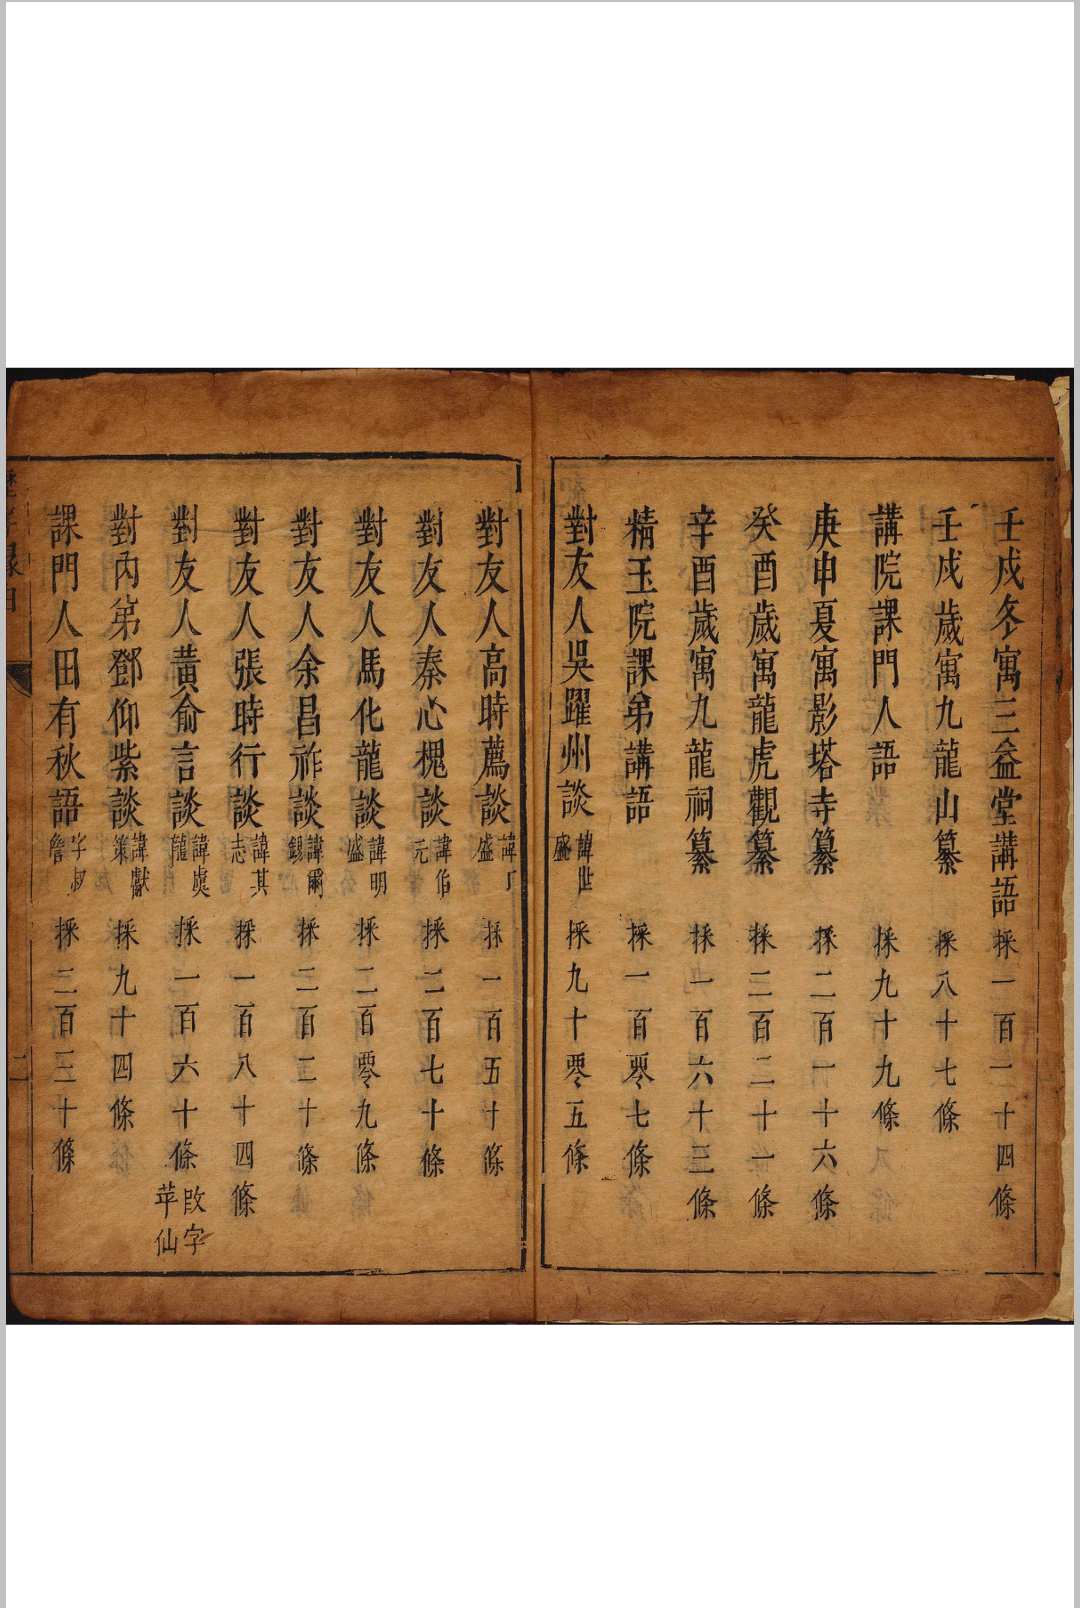 壬戌冬寓三益堂講語採一百二十四條
壬戌歲寓九龍山纂採八十七條
講院課門人語採九十九條
庚申夏寓影塔寺纂採二百一十六條
癸酉歲寓龍虎觀纂採三百二十一條
辛酉歲寓九龍祠纂採一百六十三條
精玉院課弟講語採一百零七條
對友人吳躍州談諱世盛採九十零五條
對友人高時薦談諱丁盛採一百五十條
對友人秦心槐談諱伯元採二百七十條
對友人馬化龍談諱明盛採二百零九條
對友人余昌祚談諱爾錫採二百二十條
對友人張時行談諱其志採一百八十四條
對友人黃俞言談諱虞龍採一百六十條改字苹仙
對內弟鄧仰紫談諱獻策採九十四條
課門人田有秋語字叔詹採二百三十條
二